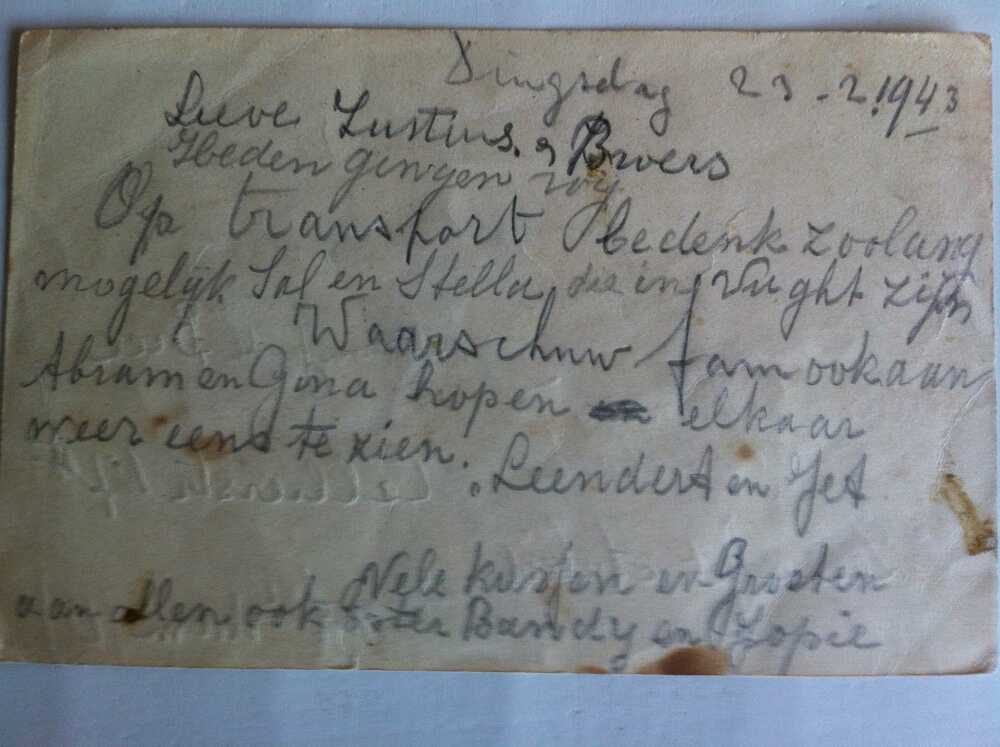 Dingsdag 23-2.1943
Lieve Zusters. & Broers
Heden gingen wij
Op transport bedenk zoolang
mogelijk Sal en Stella die in Vught zijn
Waarschuw fam ook aan
Abram en Gina hopen elkaar
weer eens te zien.
Leendert en Jet
Vele kusjen en Groeten
aan allen ook Bandy en Zopie